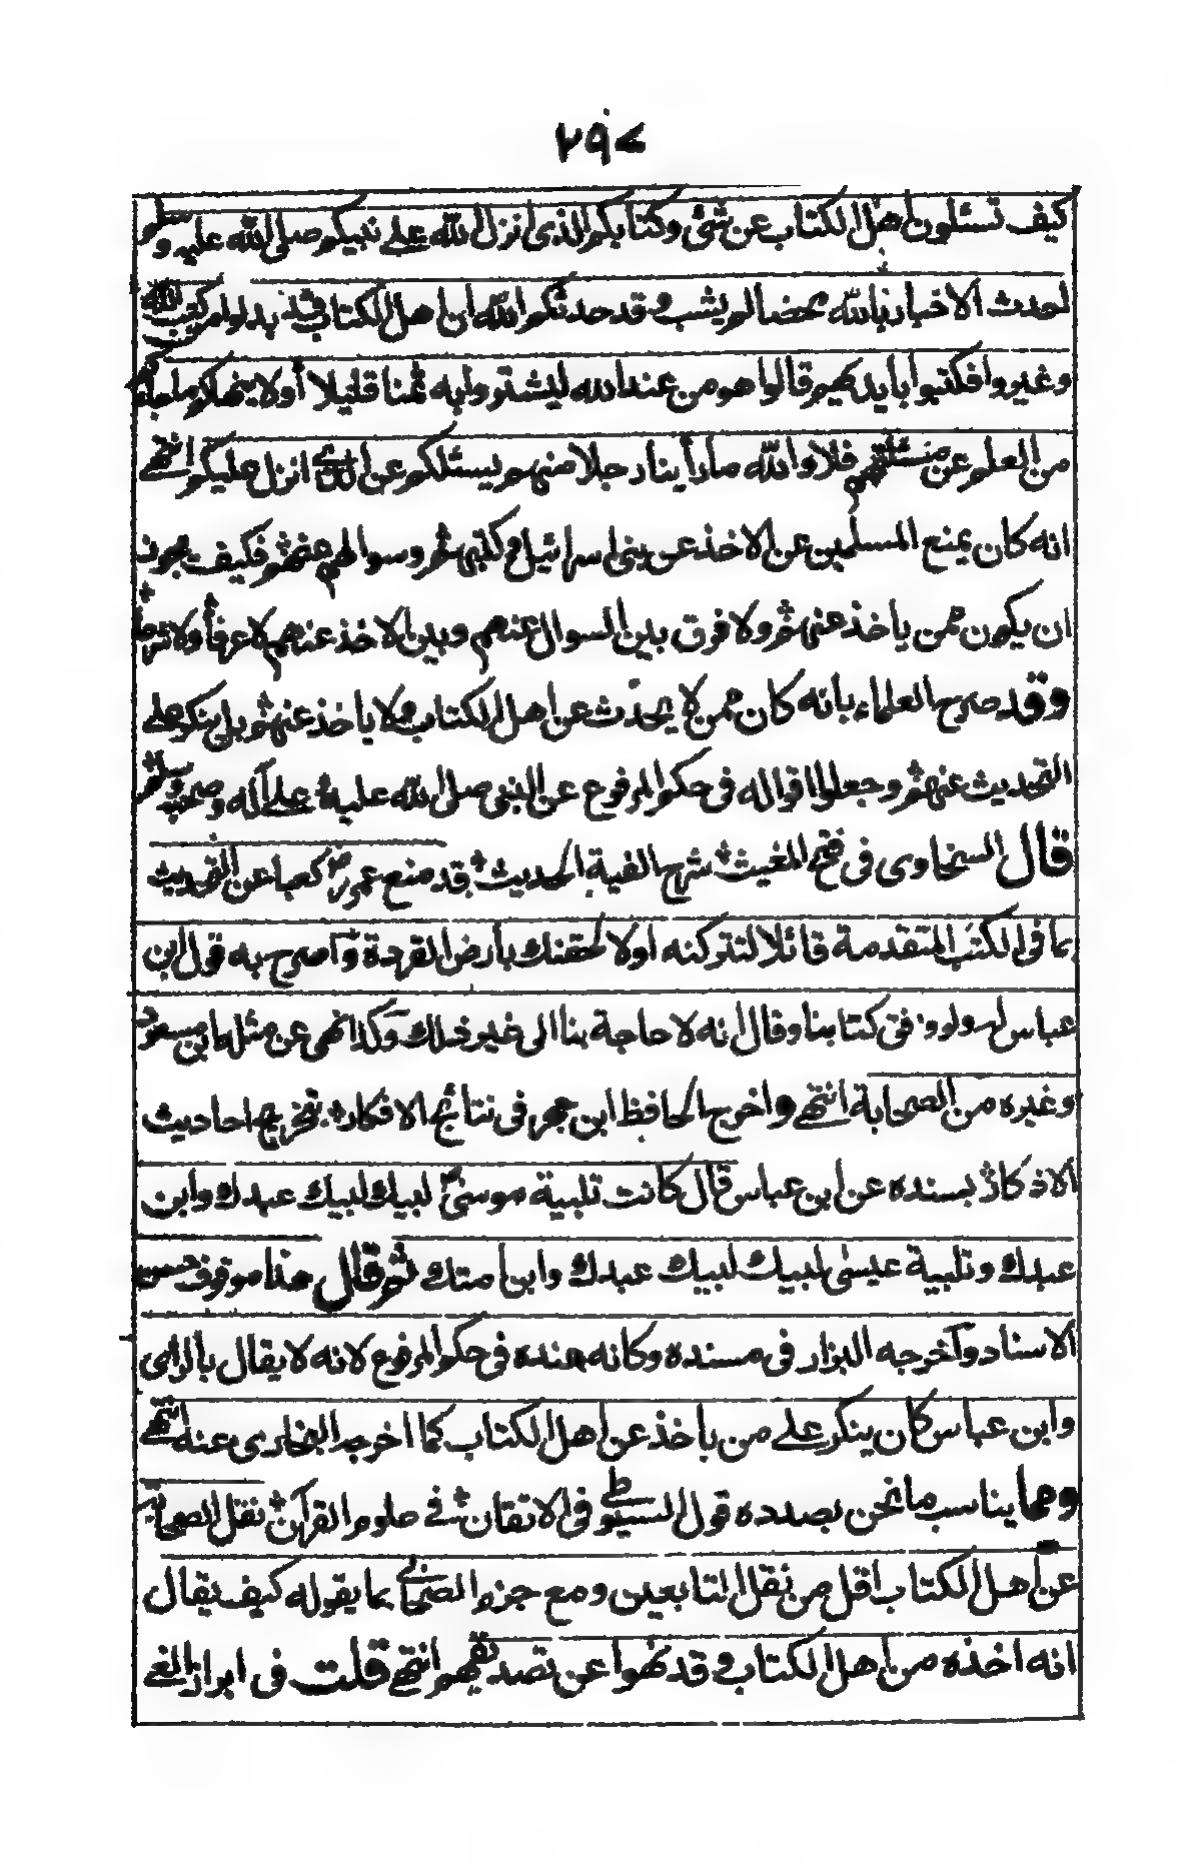 ٢٩٧
كيف تسئلون اهل الكتاب عن شئ وكتابكم الذى انزل الله على نبيكم صلى الله عليه وسلم
احدث الاخبار بالله محضا لم يشب وقد حدثكم الله ان اهل الكتاب قد بدلوا من كتب الله
وغيروا فكتبوا بايديهم قالوا هو من عند الله ليشتروا به ثمنا قليلا أولا ينهاكم ما جاءكم
من العلم عن مسئلتهم فلا والله ما رأينا رجلا منهم يسئلكم عن الذى انزل عليكم انتهى
انه كان يمنع المسلمين عن الاخذ عن بنى اسرائيل وكتبهم وسوالهم عنهم فكيف يجوز
ان يكون ممن ياخذ عنهم ولا فرق بين السوال عنهم وبين الاخذ عنهم لا عرفا ولا شرعا
وقد صرح العلماء بانه كان ممن لا يحدث عن اهل الكتاب ولا ياخذ عنهم بل ينكر على
التحديث عنهم وجعلوا اقواله فى حكم المرفوع عن النبى صلى الله عليه وعلى آله وصحبه وسلم
قال السخاوى فى فتح المغيث شرح الفية الحديث قد منع عمر كعبا عن التحديث
بما فى الكتب المتقدمة قائلا لتتركنه او لالحقنك بارض القردة واصرح به قول ابن
عباس له ولو وفق كتابنا وقال انه لا حاجة بنا الى غير ذلك وكذا نهى عن مثله ابن مسعود
وغيره من الصحابة انتهى واخرج الحافظ ابن حجر فى نتائج الافكار بتخريج احاديث
الاذكار بسنده عن ابن عباس قال كانت تلبية موسى لبيك لبيك عبدك وابن
عبدك وتلبية عيسى لبيك لبيك عبدك وابن امتك ثم قال هذا موقوف حسن
الاسناد وآخرجه البزار فى مسنده وكانه عنده فى حكم المرفوع لانه لا يقال بالراى
وابن عباس كان ينكر على من ياخذ عن اهل الكتاب كما اخرجه البخارى عنه انتهى
ومما يناسب ما نحن بصدده قول السيوطى فى الاتقان فى علوم القرآن نقل الصحابة
عن اهل الكتاب اقل من نقل التابعين ومع جزم الصحابى بما يقوله كيف يقال
انه اخذه من اهل الكتاب وقد نهوا عن تصديقهم انتهى قلت فى ابراز الغى